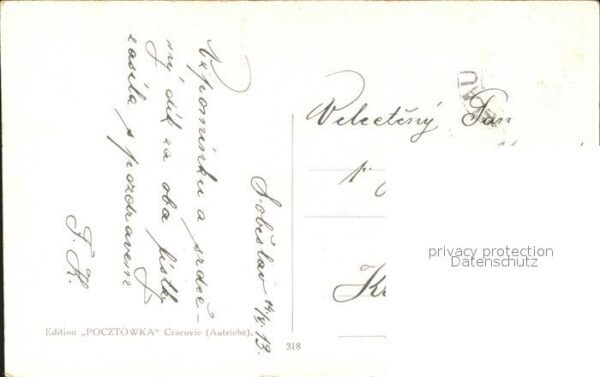 Vzpomínku a srdeč-
ný dík za oba lístky
zasílá s pozdravem
F. K.
Soběslav 14/V. 13.
Velectěný Pan
privacy protection
Datenschutz
Edition „POCZTÓWKA“ Cracovie (Autriche).
318